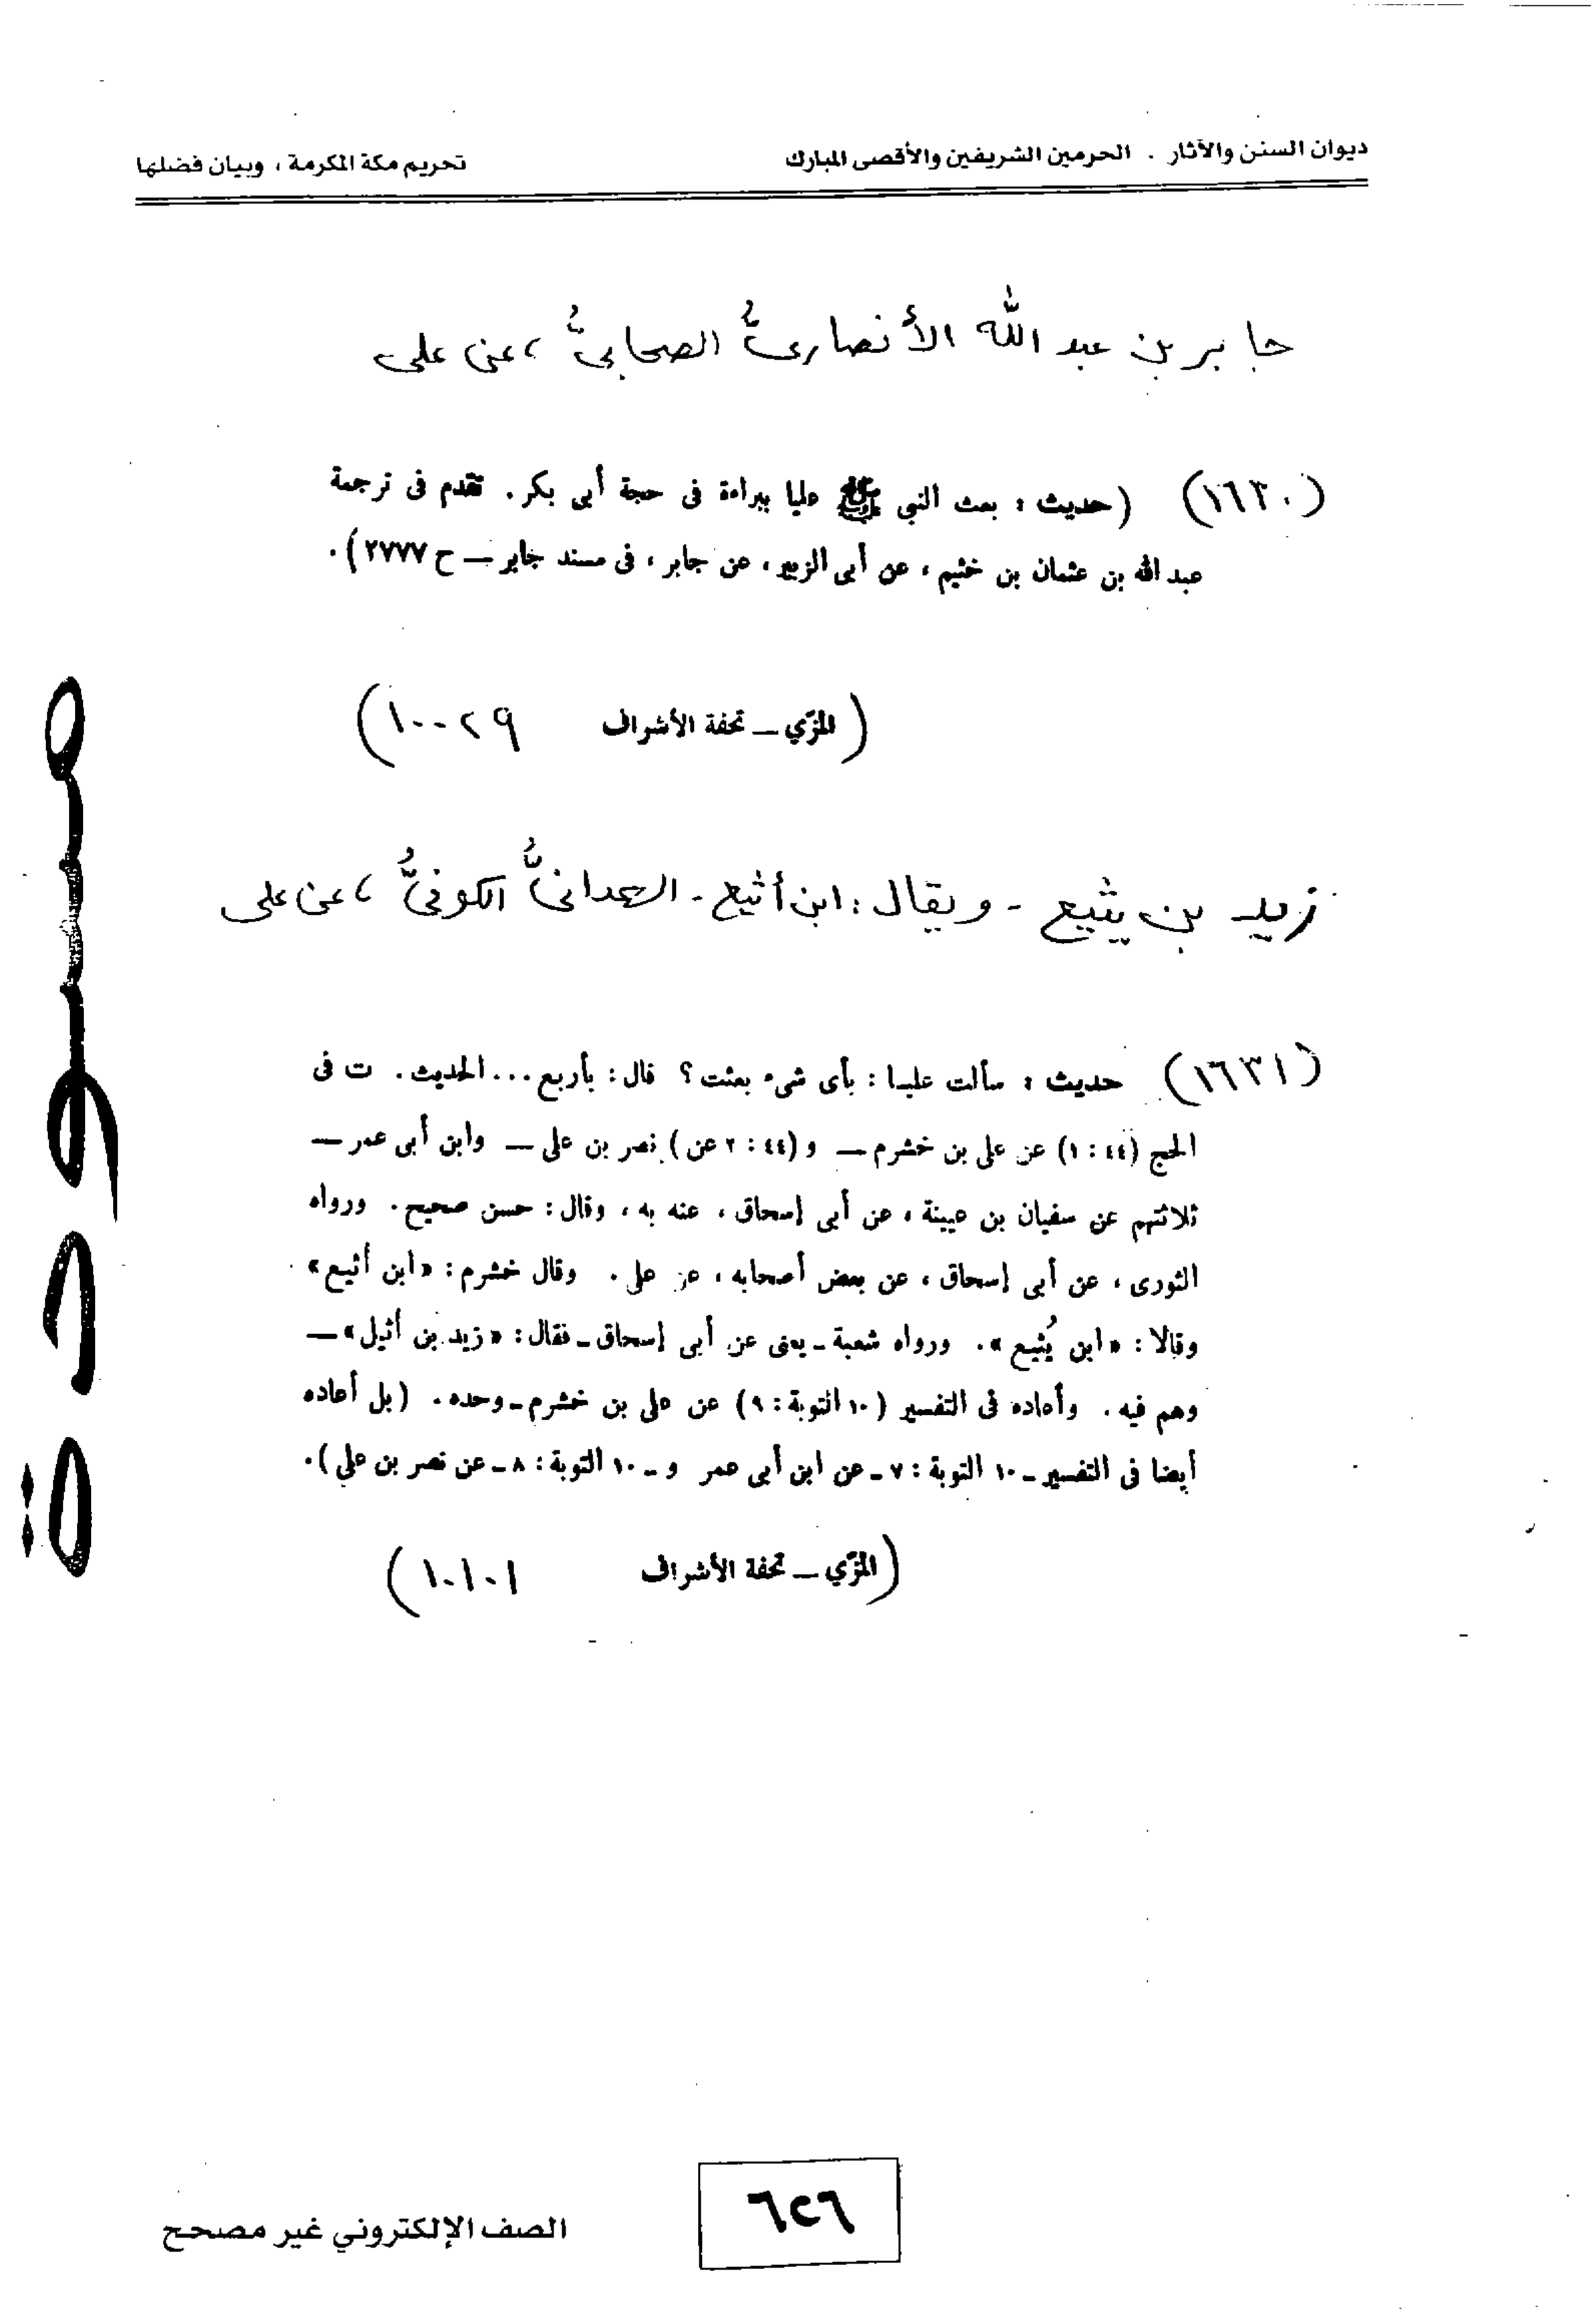 ديوان السنن والآثار . الحرمين الشريفين والأقصى المبارك
تحريم مكة المكرمة ، وبيان فضلها
جابر بن عبد الله الأنصاريُّ الصحابيُّ ، عن على
(١٦٣٠) (حديث : بعث النبي ﷺ عليا ببراءة فى حجة أبى بكر . تقدم فى ترجمة
عبد الله بن عثمان بن خثيم ، عن أبى الزبير ، عن جابر ، فى مسند جابر — ح ٢٧٧٧) .
(المزّي — تحفة الأشراف ١٠٠٢٩)
زيد بن يثيع - ويقال : ابن أثيع - الهمدانىُّ الكوفىُّ ، عن على
(١٦٣١) حديث : سألت عليا : بأى شىء بعثت ؟ قال : بأربع ... الحديث . ت فى
الحج (٤٤ : ١) عن على بن خشرم — و (٤٤ : ٢ عن) نصر بن على — وابن أبى عمر —
ثلاثتهم عن سفيان بن عيينة ، عن أبى إسحاق ، عنه به ، وقال : حسن صحيح . ورواه
الثورى ، عن أبى إسحاق ، عن بعض أصحابه ، عن على . وقال خشرم : «ابن أثيع»
وقالا : «ابن يُثيع» . ورواه شعبة ـ يعنى عن أبى إسحاق ـ فقال : «زيد بن أثيل» —
وهم فيه . وأعاده فى التفسير (١٠ التوبة : ٩) عن على بن خشرم ـ وحده . (بل أعاده
أيضا فى التفسير ـ ١٠ التوبة : ٧ ـ عن ابن أبى عمر و ـ ١٠ التوبة : ٨ ـ عن نصر بن علي) .
(المزّي — تحفة الأشراف ١٠١٠١)
مسودة
٦٢٦
الصف الإلكتروني غير مصحح